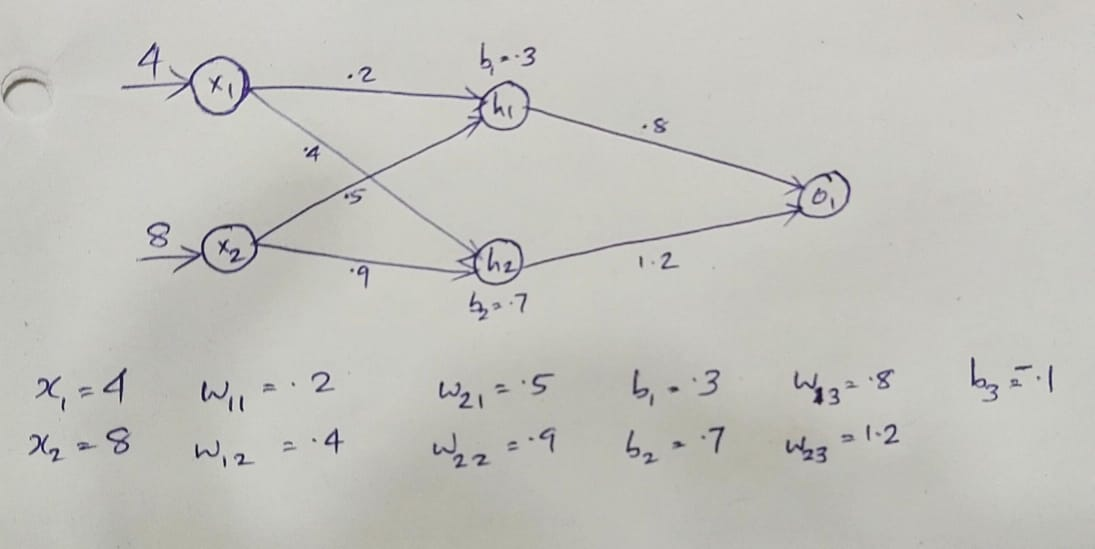 b₁ = .3
4 x₁ .2 h₁
.8
.4
.5 o₁
8 x₂ h₂
.9 1.2
b₂ = .7
x₁ = 4 w₁₁ = .2 w₂₁ = .5 b₁ = .3 w₁₃ = .8 b₃ = -.1
x₂ = 8 w₁₂ = .4 w₂₂ = .9 b₂ = .7 w₂₃ = 1.2